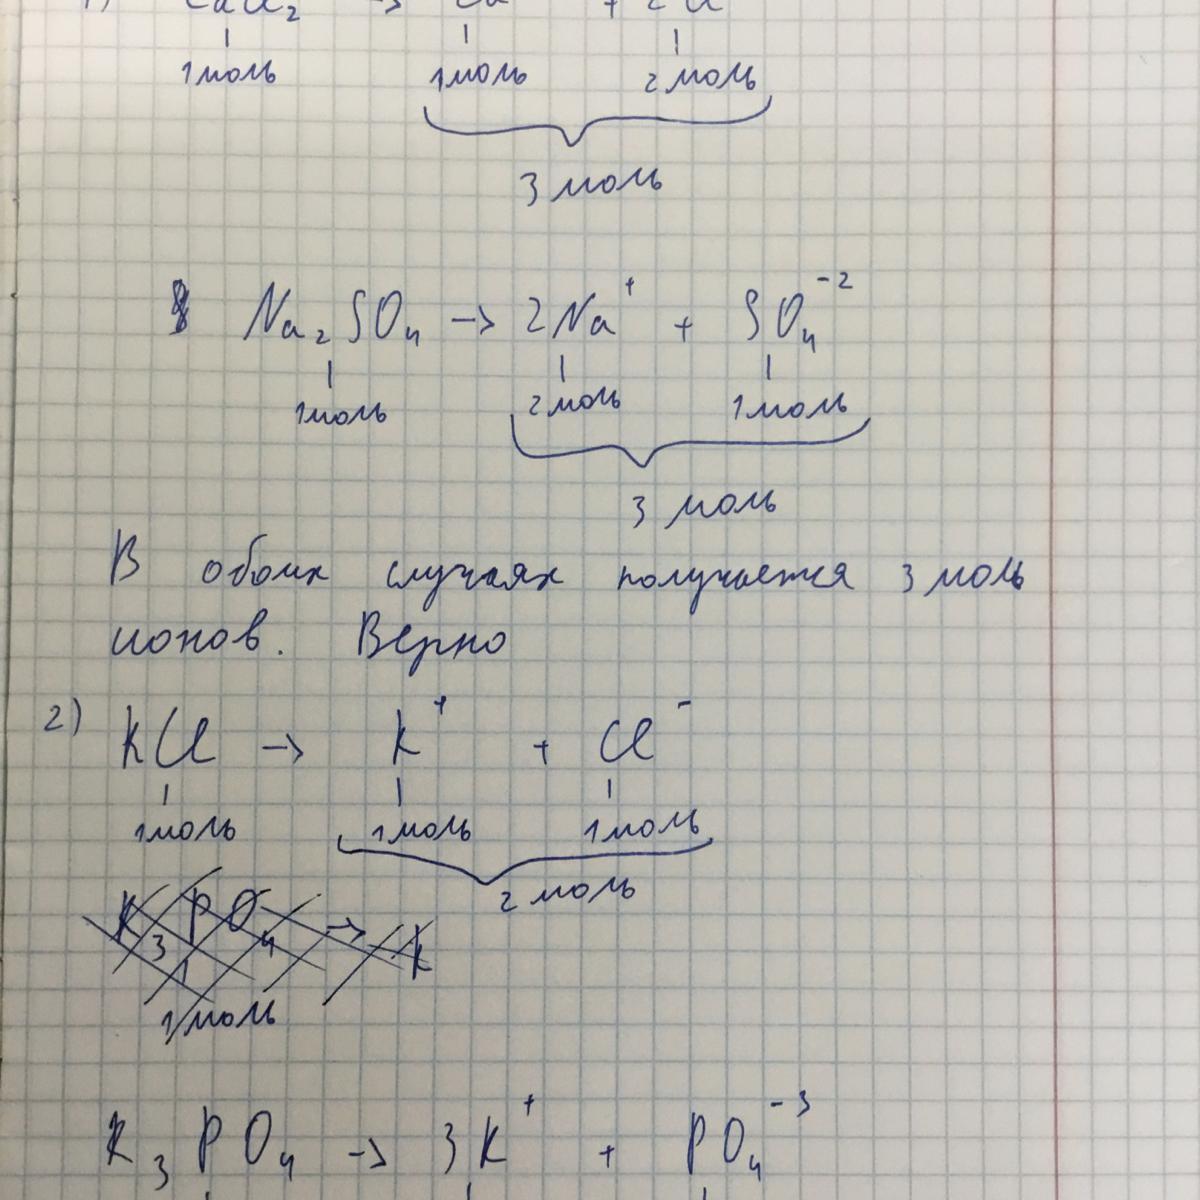 1) CaCl₂ → Ca + 2Cl
1моль 1моль 2моль
3 моль
Na₂SO₄ → 2Na⁺ + SO₄⁻²
1моль 2моль 1моль
3 моль
В обоих случаях получается 3 моль
ионов. Верно
2) KCl → K⁺ + Cl⁻
1моль 1моль 1моль
2 моль
K₃PO₄ → K
1моль
K₃PO₄ → 3K⁺ + PO₄⁻³